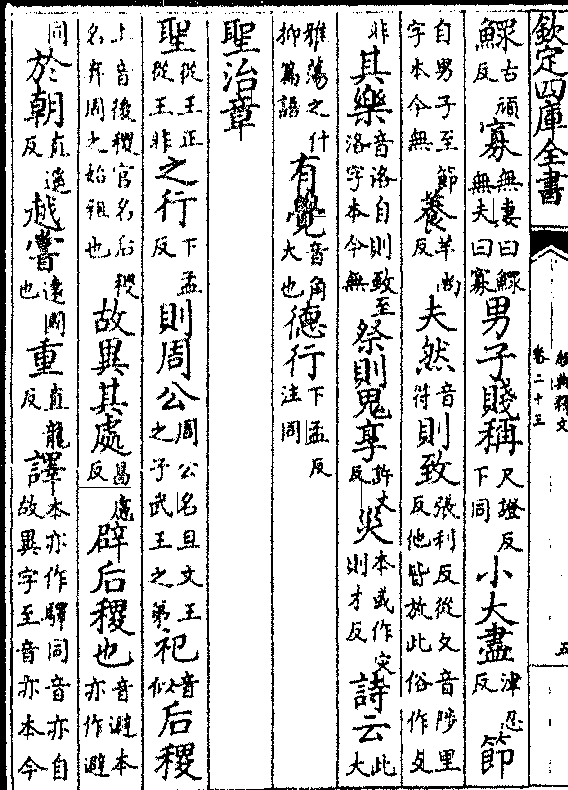 欽定四庫全書
經典釋文
卷二十五
五
鰥古頑反寡無妻曰鰥無夫曰寡男子賤稱尺證反下同小大盡津忍反節
自男子至節字本今無養羊尚反夫然音符則致張利反從夂音陟里反他皆放此俗作攵
非其樂音洛自則致至洛字本今無祭則鬼享許丈反災本或作灾則才反詩云此大
雅蕩之什抑篇語有覺音角大也德行下孟反注同
聖治章
聖從王正從王非之行下孟反則周公周公名旦文王之子武王之弟祀音似后稷
上音後稷官名后稷名弃周之始祖也故異其處昌慮反辟后稷也音避本亦作避
同於朝直遙反越嘗遠國也重直龍反譯本亦作驛同音亦自故異字至音亦本今